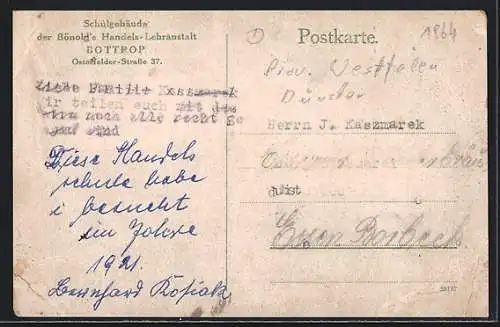 Schulgebäude
der Bönold's Handels-Lehranstalt
BOTTROP
Osterfelder-Straße 37.
Postkarte.
1964
Prov. Westfalen
Münster
Liebe Familie Kaszmarek
wir teilen euch mit das
wir noch alle recht ge
sund sind
Herrn J. Kaszmarek
Diese Handels
schule habe
i besucht
im Jahre
1921.
Bernhard
Essen Borbeck